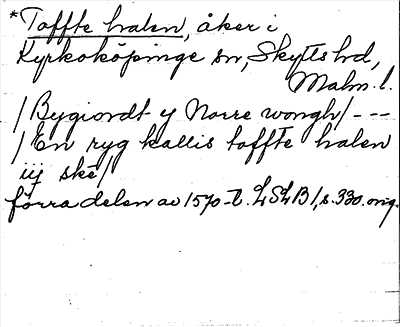 *Toffte halen, åker i
Kyrkoköpinge sn, Skytts hd,
Malm. l.
/Bygiordt y Norre wongh/ ---
/En ryg kallis toffte halen
iij ske/
förra delen av 1570-t. LSLB 1, s. 330. orig.